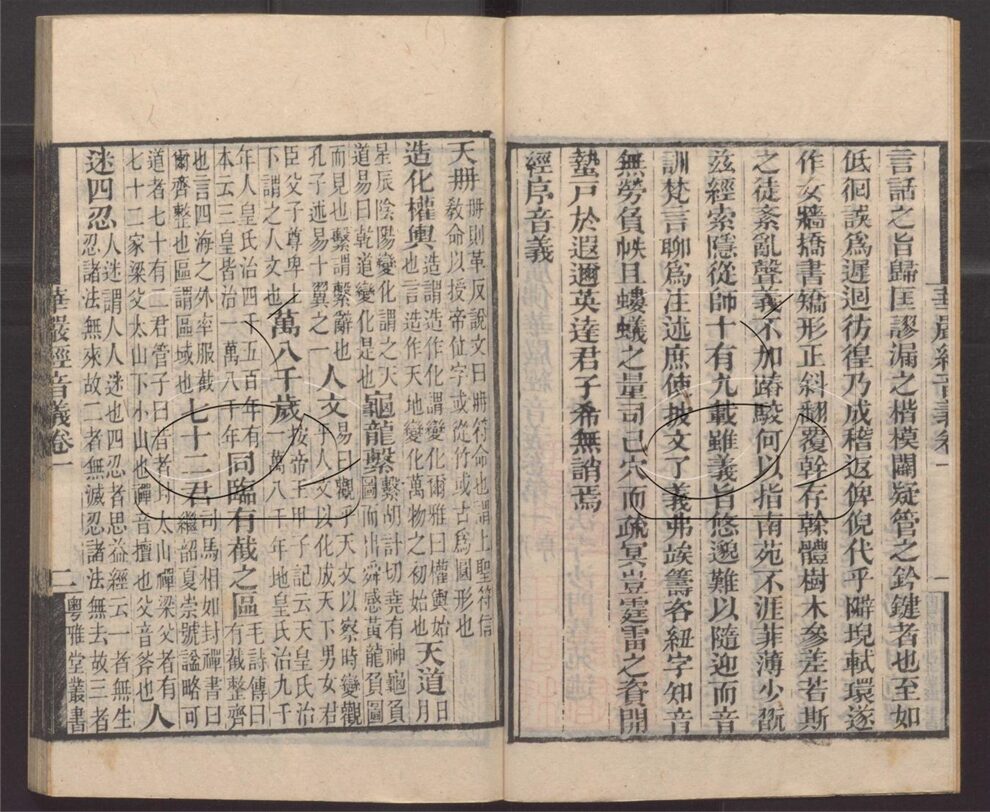 言話之旨歸匡謬漏之楷模闢疑管之鈐鍵者也至如
低徊誤爲遲迴彷徨乃成稽返俾倪代乎隦堄軾環遂
作女牆橋書矯形正斜翻覆幹存榦體樹木參差若斯
之徒紊亂聲義不加踳駮何以指南苑不涯菲薄少翫
兹經索隱從師十有九載雖義旨悠邈難以隨迎而音
訓梵言聊爲注述庶使披文了義弗俟籌咨紐字知音
無勞負帙且螻蟻之量司己穴而疏冥豈霆雷之資開
蟄戸於遐邇英達君子希無誚焉
經序音義
華嚴經音義卷一
一
天冊 冊則革反説文曰冊符命也謂上聖符信
教命以授帝位字或從竹或古爲𠕋形也
造化權輿 造謂造作化謂變化爾雅曰權輿始
也言造作天地變化萬物之初始也 天道 日月
星辰陰陽變化謂之天
道易曰乾道變化是也 龜龍繫 繫胡計切堯有神龜負
圖而出舜感黃龍負圖
而見也繫謂繫辭也
孔子述易十翼之一 人文 易曰觀乎天文以察時變觀
乎人文以化成天下男女君
臣父子尊卑上
下謂之人文也 萬八千歲 按帝王甲子記云天皇氏治
一萬八千年地皇氏治九千
年人皇氏治四千五百年有
本云三皇皆治一萬八千年 同臨有截之區 毛詩傳曰
有截整齊
也言四海之外率服截
爾齊整也區謂區域也 七十二君 司馬相如封禪書曰
繼韶夏崇號謚略可
道者七十有二君管子曰古者封太山禪梁父者有
七十二家梁父太山下小山也禪音擅也父音斧也 人
迷四忍 人迷謂人人迷也四忍者思益經云一者無生
忍諸法無來故二者無滅忍諸法無去故三者
華嚴經音義卷一
二
粤雅堂叢書